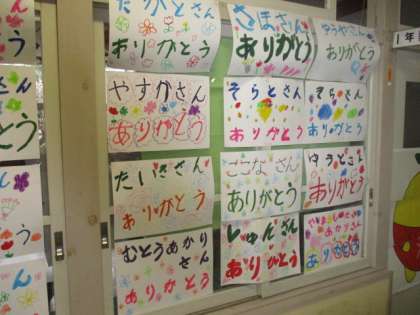 たかとさん
ありがとう
さほさん
ありがとう
ゆうやさん
ありがとう
やすかさん
ありがとう
そらとさん
ありがとう
そらさん
ありがとう
たいきさん
ありがとう
ここなさん
ありがとう
ありがとう
むとうあかり
さん
ありがとう
しゅんさん
ありがとう
あかりさん
ありがとう
1年